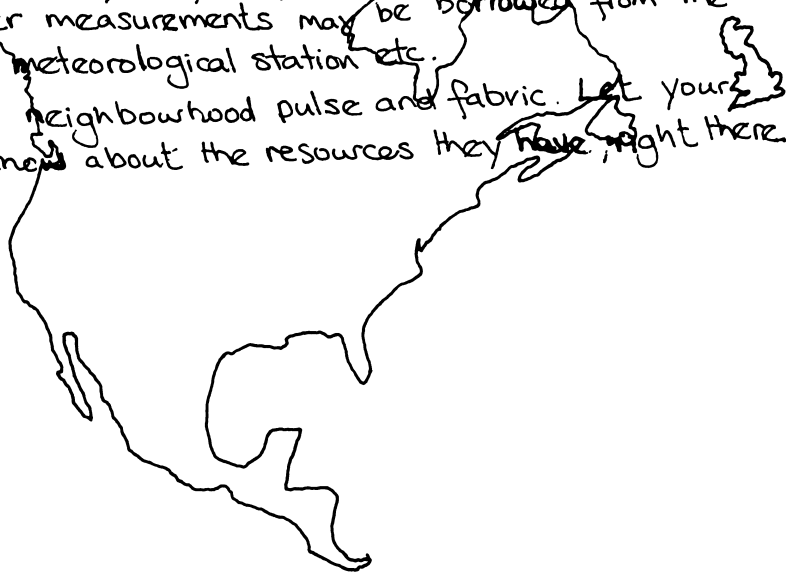 er measurements may be borrowed from the
meteorological station etc.
neighbourhood pulse and fabric. Let your
about the resources they have, right there.